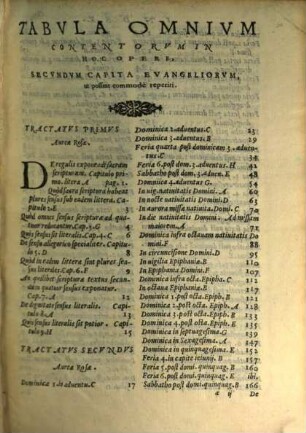 TABVLA OMNIVM
CONTENTORVM IN
HOC OPERE,
SECVNDVM CAPITA EVANGELIORVM,
ut possint commode reperiri.
TRACTATVS PRIMVS
Aureæ Rosæ.
De regulis exponendi sacram
scripturam. Capitulo primo
litera A pag. 1.
Quòd sacra scriptura habeat
plures sensus sub eadem litera. Capitulo
2. E 3
Quid omnes sensus scripturæ ad quatuor
reducantur. Cap. 3. G 4
Quis sensus literalis. Cap. 4. C 6
De sensu allegorico specialiter. Capitulo
5. D 8
Quid in eadem litera sint plures sensus
literales. Cap. 6. F 9
textus secundum
quatuor sensus exponatur.
Cap. 7. A 12
De dignitate sensus literalis. Capitulo
8. A 13
Quis sensus literalis sit potior. Capitulo
9. H 15
TRACTATVS SECVNDVS
Aureæ Rosæ.
Dominica 1. de aduentu. C 17
Dominica 2. aduentus. C 23
Dominica 3. aduentus. B 29
Feria quarta post dominicam 3. aduentus.
C 34
Feria 6. post dom. 3. aduentus. H 42
Sabbatho post dom. 3. Aduen. E 48
Dominica 4. aduentus G. 54
In uig. natiuitatis Domini. A 60
In nocte natiuitatis Domini. D 63
In aurora missa natiuit. Domi. C 67
In die natiuitatis Domini. Ad missam
maiorem. A
Dominica infra octauam natiuitatis Domini.
F 88
In circuncisione Domini. D 95
In uigilia Epiphaniæ. B
In Epiphania Domini. F
Dominica infra octa. Epiph. C
In octaua Epiphaniæ. B 122
Dominica 1. post octa. Epiph. B
Dominica 2. post octa. Epiph. A 128
Dominica 3. post octa. Epiph. A
Dominica in septuagesima. C 139
Dominica in Sexagesima. A
Dominica in quinquagesima. E 152
Feria 4. In capite ieiunij. B
Feria 5. post domi. quinquag. B
Feria 6. post domi. quinquag. E ibi.
Sabbatho post domi. quinquag. B 166
a ij De